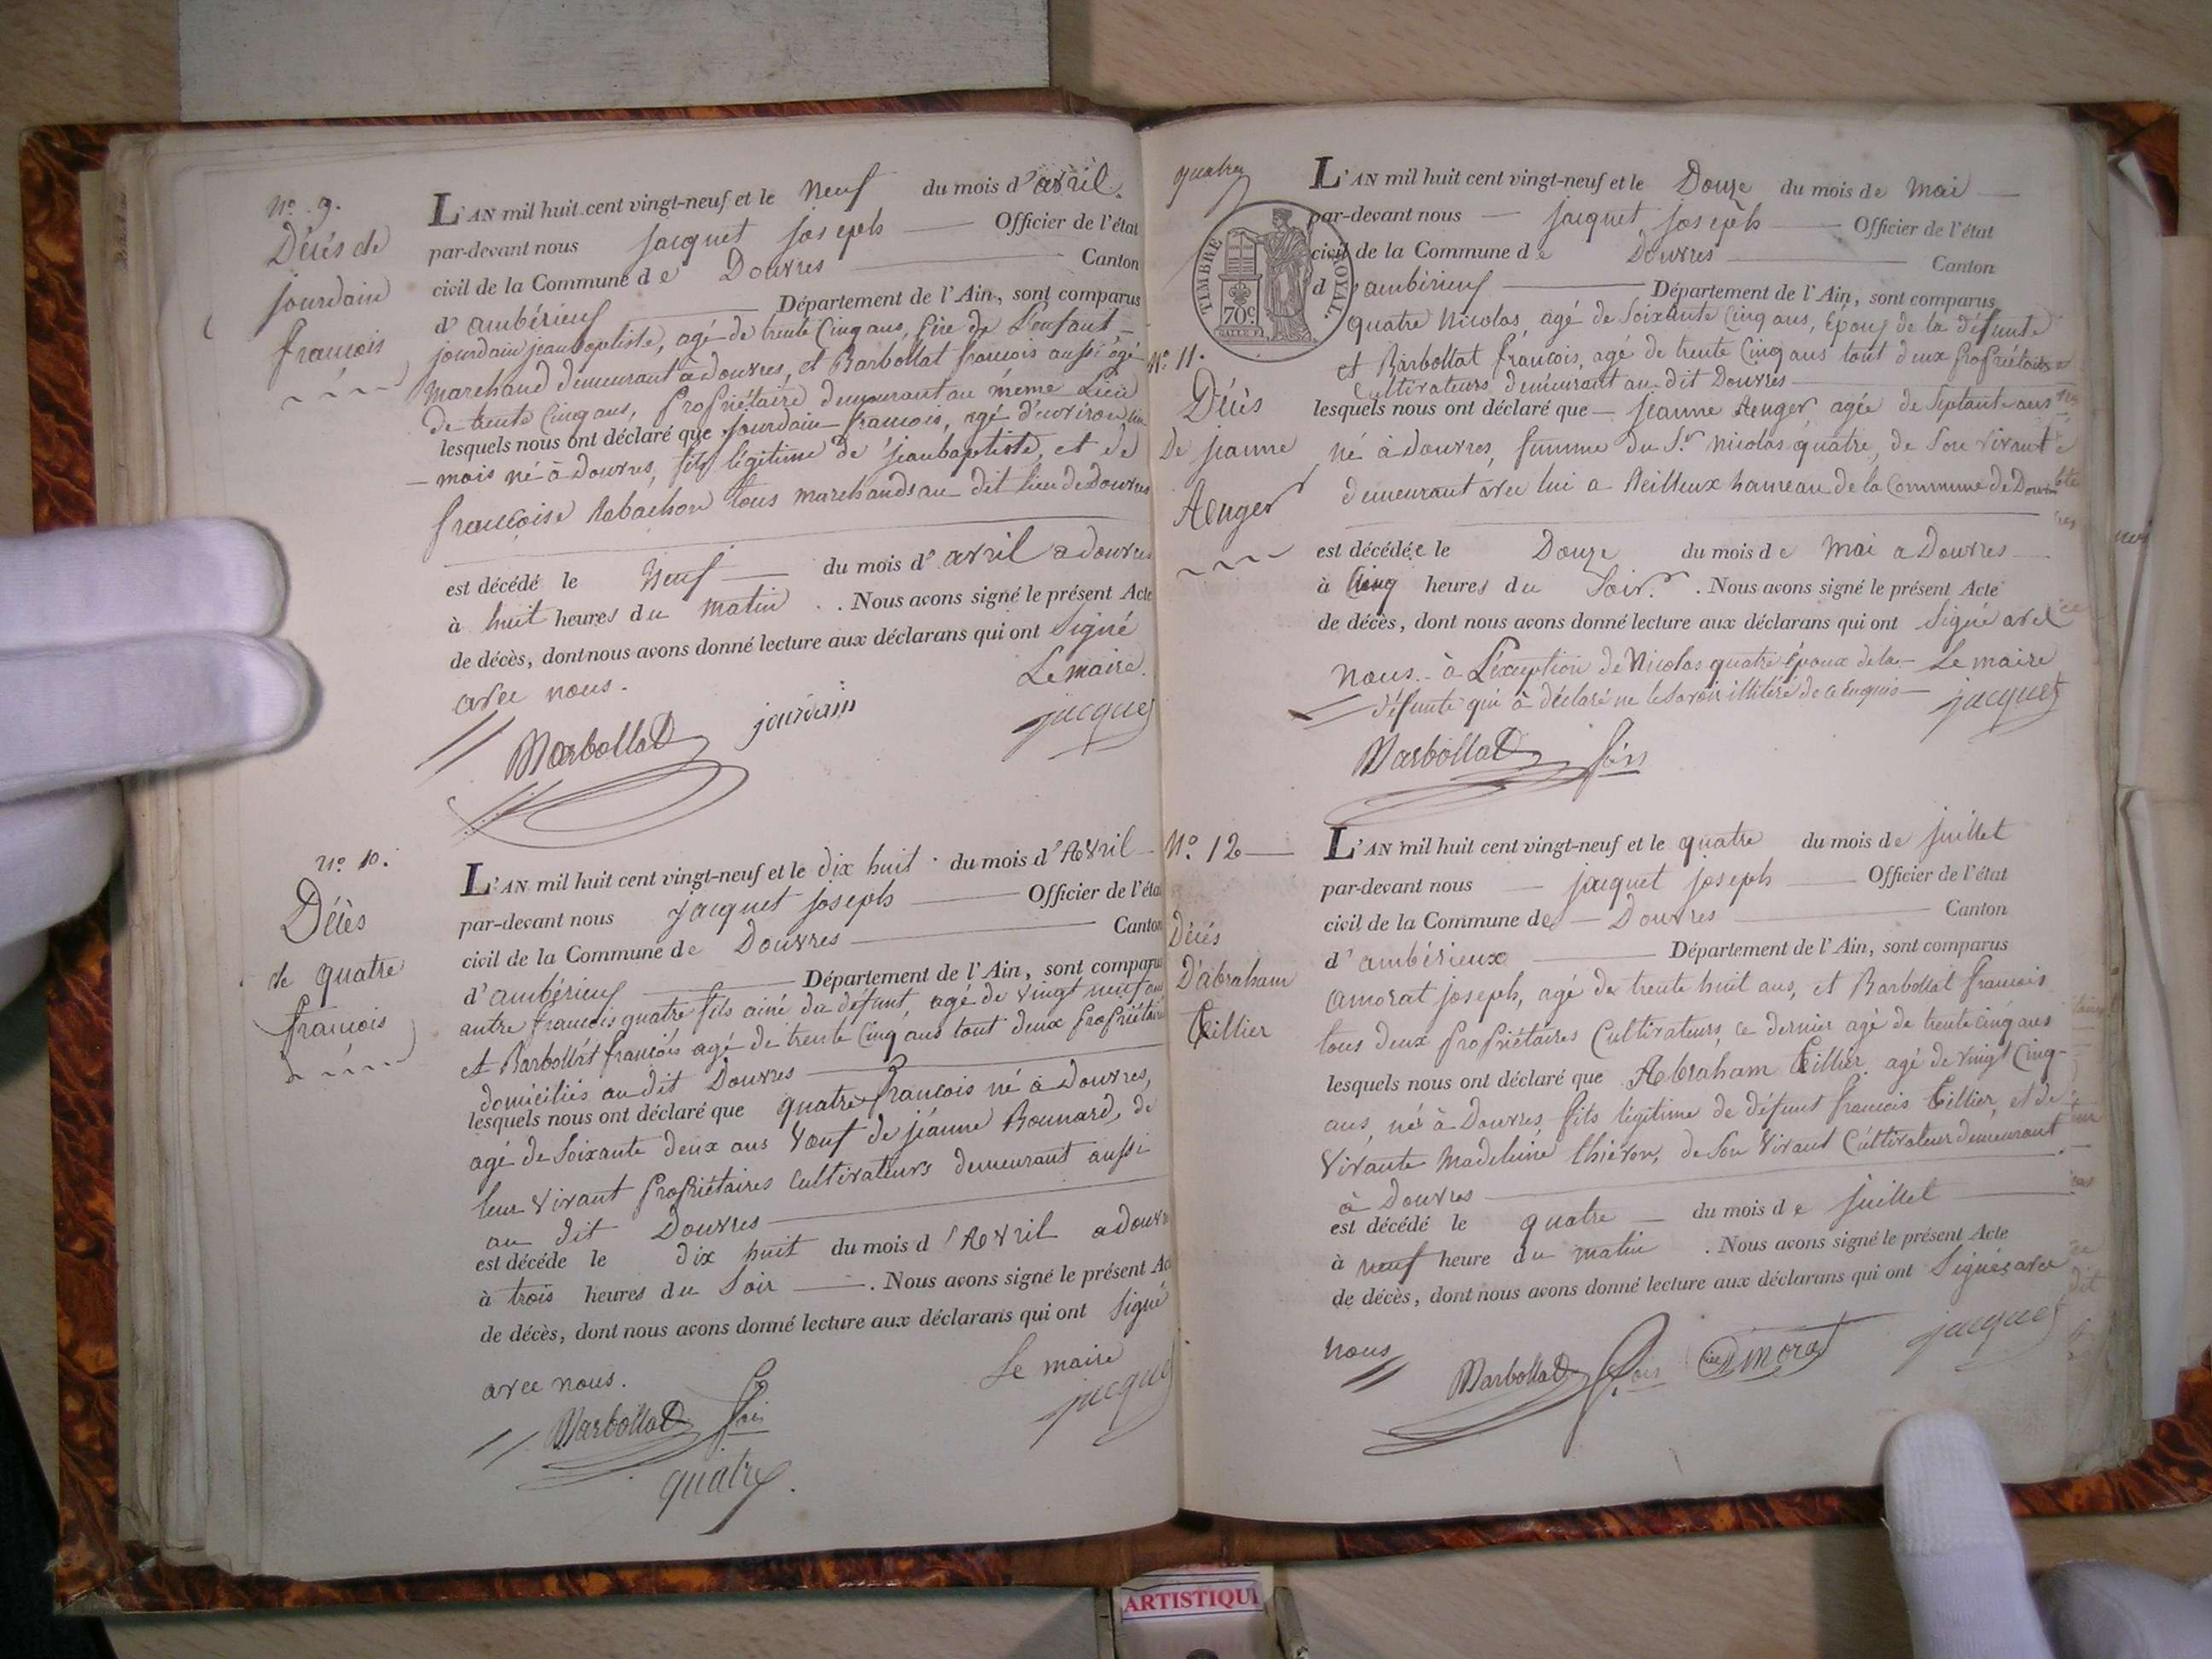 N° 9.
Décès de
jourdain
françois
L'AN mil huit cent vingt-neuf et le Neuf du mois d'avril
par-devant nous Jacquet joseph Officier de l'état
civil de la Commune de Douvres Canton
d'ambérieuf Département de l'Ain, sont comparus
jourdain jeanbaptiste, agé de trente Cinq ans, père de L'enfant
Marchand demeurant a douvres, et Barbollat françois aussi agé
de trente Cinq ans, propriétaire demeurant au même Lieu
lesquels nous ont déclaré que jourdain françois, agé d'environ un
mois né à Douvres, fils légitime de jeanbaptiste, et de
françoise Rabachon tous marchands au dit lieu de Douvres
est décédé le Neuf du mois d'avril a douvres
à huit heures du matin . . Nous avons signé le présent Acte
de décès, dont nous avons donné lecture aux déclarans qui ont Signé
avec nous. Le maire
Barbollat jourdain jacquet
N° 10.
Décès
de quatre
françois
L'AN mil huit cent vingt-neuf et le dix huit du mois d'Avril
par-devant nous Jacquet joseph Officier de l'état
civil de la Commune de Douvres Canton
d'ambérieuf Département de l'Ain, sont comparus
autre françois quatre fils ainé du défunt, agé de vingt neuf ans
et Barbollat françois agé de trente Cinq ans tout deux propriétaires
domiciliés au dit Douvres
lesquels nous ont déclaré que quatre françois né à Douvres,
agé de Soixante deux ans Veuf de jeanne Bonnard, de
leur vivant propriétaires Cultivateurs demeurant aussi
au dit Douvres
est décédé le dix huit du mois d'Avril a douvres
à trois heures du Soir . Nous avons signé le présent Acte
de décès, dont nous avons donné lecture aux déclarans qui ont Signé
avec nous. Le maire
Barbollat fçois jacquet
quatre
quatre
TIMBRE ROYAL
70c
L'AN mil huit cent vingt-neuf et le Douze du mois de Mai
par-devant nous Jacquet joseph Officier de l'état
civil de la Commune de Douvres Canton
d'ambérieuf Département de l'Ain, sont comparus
quatre Nicolas, agé de Soixante Cinq ans, Epoux de la défunte
et Barbollat françois, agé de trente Cinq ans tout deux propriétaires
Cultivateurs demeurant au dit Douvres
N° 11.
Décès
De jeanne
Auger
lesquels nous ont déclaré que jeanne Auger, agée de Septante ans
né à Douvres, femme du Sr. Nicolas quatre, de Son vivant
demeurant avec lui a Neilleux hameau de la Commune de Douvres
est décédée le Douze du mois de Mai a Douvres
à Cinq heures du Soir. . Nous avons signé le présent Acte
de décès, dont nous avons donné lecture aux déclarans qui ont Signé avec
Nous. à L'exception de Nicolas quatre époux de la Le maire
défunte qui à déclaré ne le Savoir illitéré de ce Enquis jacquet
Barbollat fçois
N° 12
Décès
D'abraham
Tillier
L'AN mil huit cent vingt-neuf et le quatre du mois de Juillet
par-devant nous jacquet joseph Officier de l'état
civil de la Commune de Douvres Canton
d'ambérieux Département de l'Ain, sont comparus
Amorat joseph, agé de trente huit ans, et Barbollat françois
tous deux propriétaires Cultivateurs, ce dernier agé de trente cinq ans
lesquels nous ont déclaré que Abraham Tillier agé de Vingt Cinq
ans, né à Douvres, fils légitime de défunt françois Tillier, et de
Vivante Madeleine thiévon, de Son Vivant Cultivateur demeurant
à Douvres
est décédé le quatre du mois de juillet
à neuf heure du matin . Nous avons signé le présent Acte
de décès, dont nous avons donné lecture aux déclarans qui ont Signés avec
Nous
Barbollat fçois Amorat jacquet
ARTISTIQU